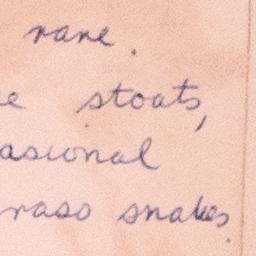 rare.
e stoats,
asional
rass snakes.